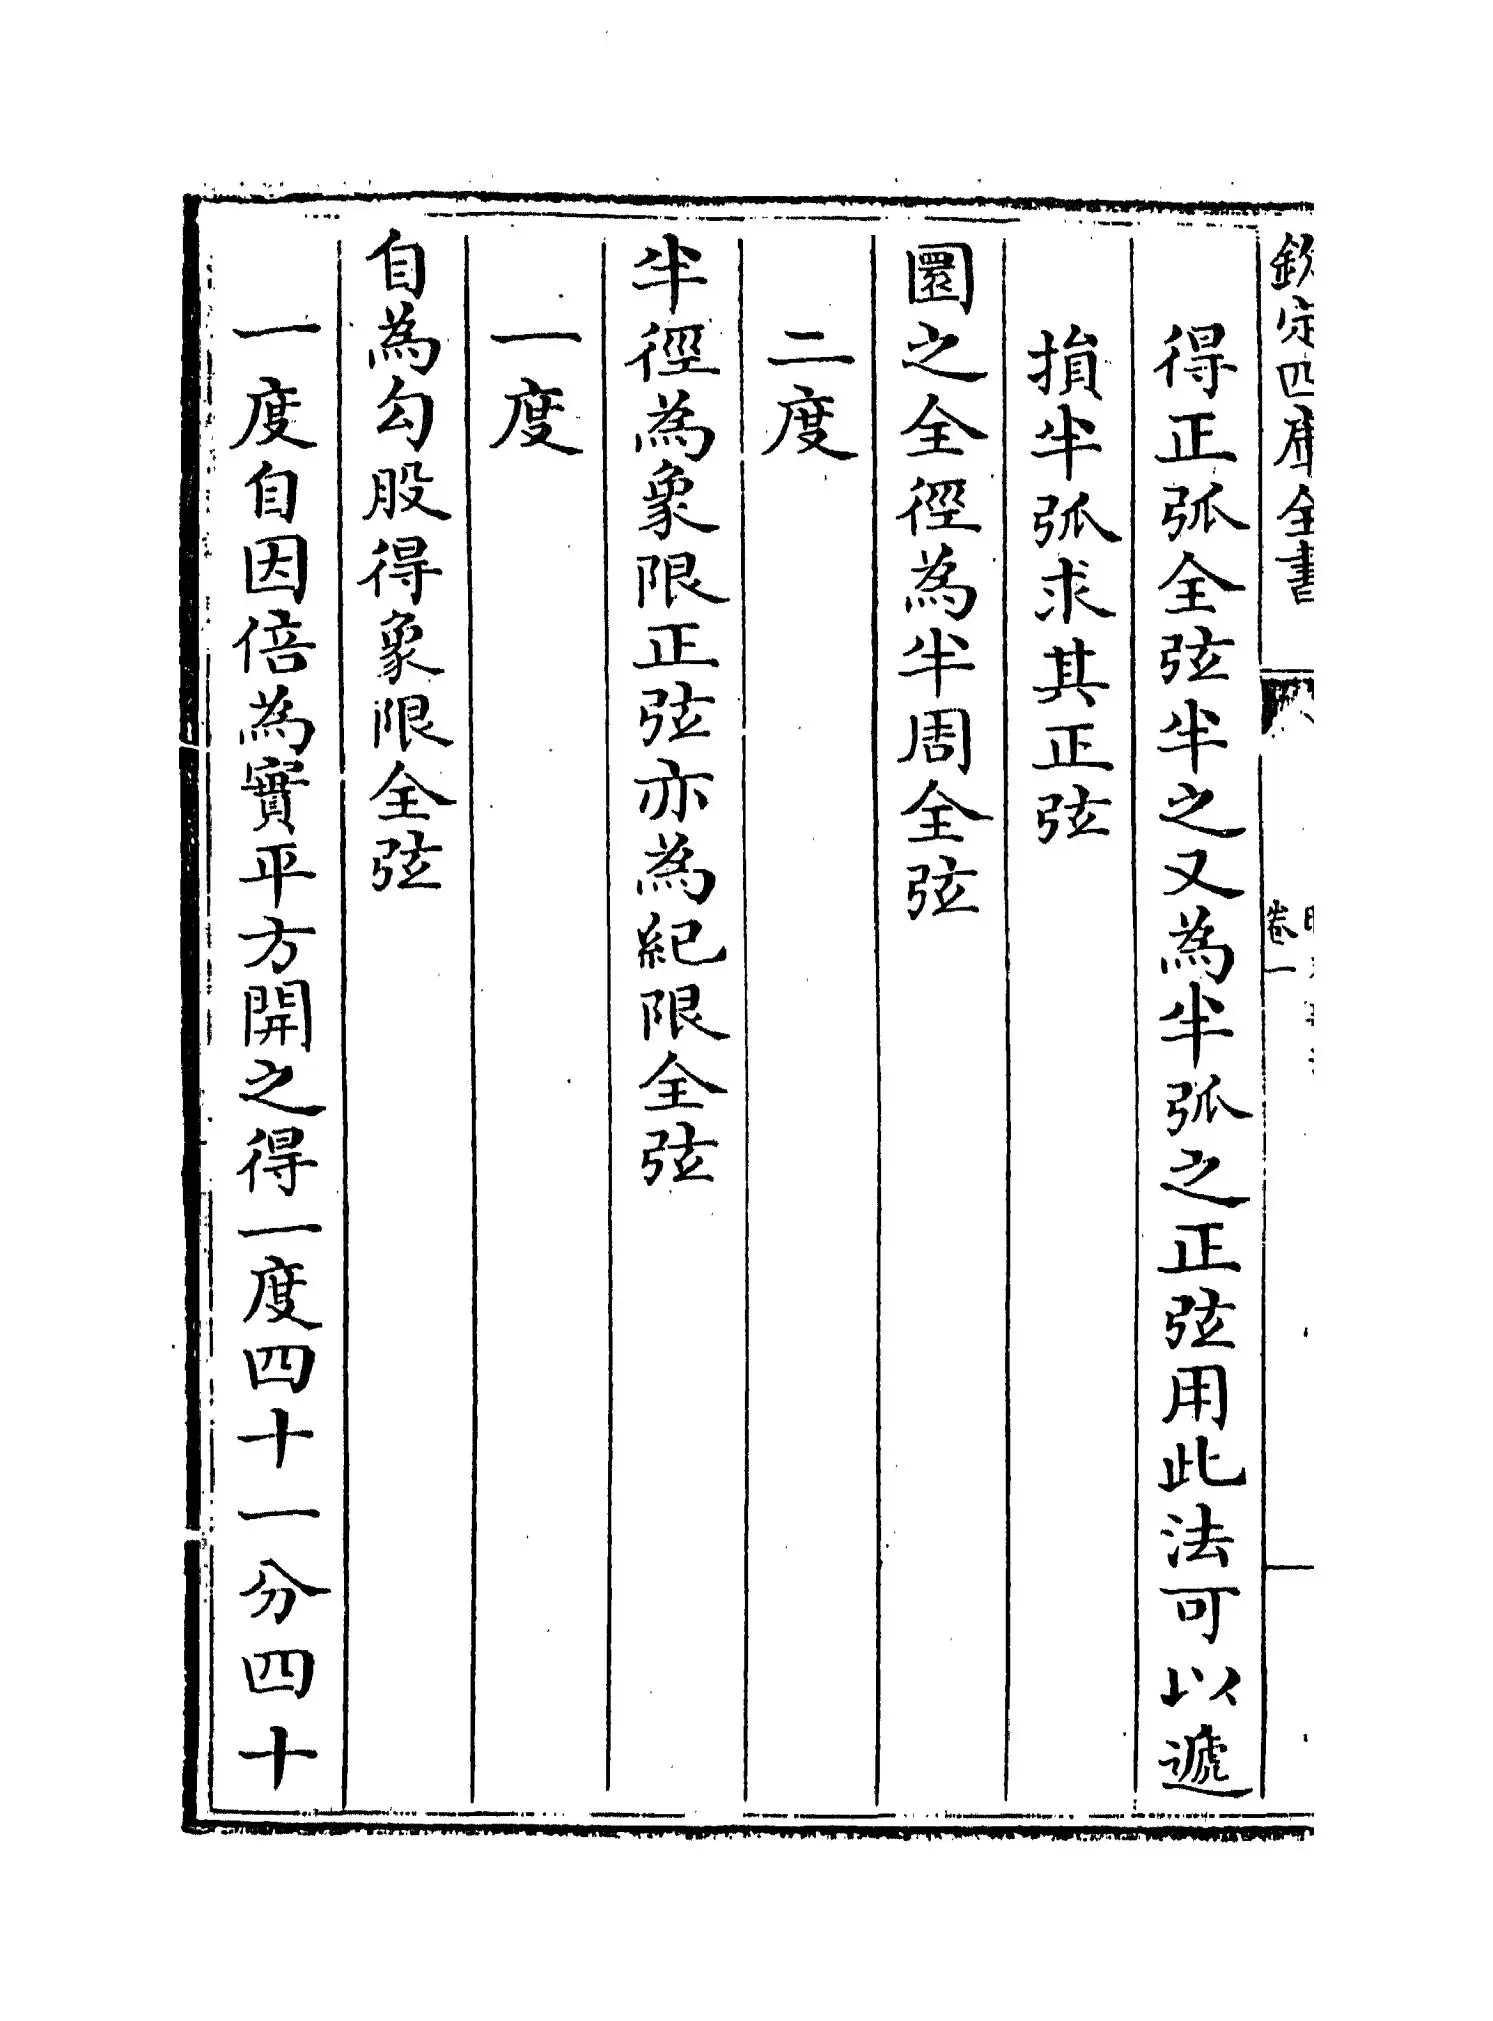 欽定四庫全書
卷一
得正弧全弦半之又為半弧之正弦用此法可以遞
損半弧求其正弦
圜之全徑為半周全弦
二度
半徑為象限正弦亦為紀限全弦
一度
自為勾股得象限全弦
一度自因倍為實平方開之得一度四十一分四十